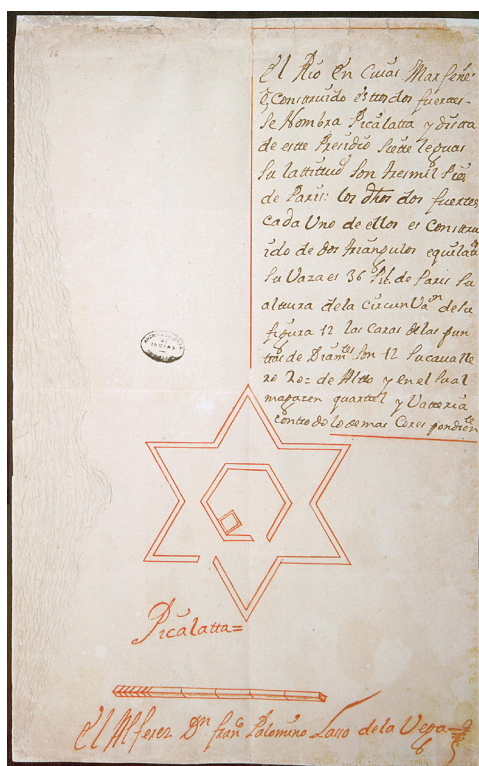 El Rio en Cuias Margene
s, Construido estos dos fuertes
se Nombra Picalatta y dista
de este Presidio siete leguas
su lattitud son tres mil Pies
de Paris: los dhos dos fuertes
cada Uno de ellos es Constru
ido de dos triangulos equilatos
su Vara es 36 Pil. de Paris su
altura de la CircunVaon desu
figura 12 las Caras de las pun
ttas de Diamtes son 12 su cavalle
ro 20= de Altto y en el su al
magazen quarttel y Vatteria
con ttodo lo demas Corespondiente
ARCHIVO GENERAL
DE
INDIAS
Picalatta=
El Alferez Dn franco Palomino Lasso de la Vega